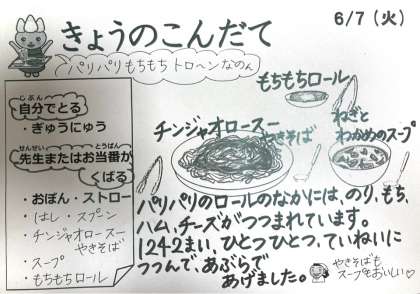 きょうのこんだて
6/7（火）
パリパリもちもちトローンなのん
じぶん
自分でとる
・ぎゅうにゅう
せんせい　とうばん
先生またはお当番が
くばる
・おぼん・ストロー
・はし・スプン
・チンジャオロースー
やきそば
・スープ
・もちもちロール
もちもちロール
チンジャオロースー
やきそば
ねぎと
わかめのスープ
パリパリのロールのなかには、のり、もち、
ハム、チーズがつつまれています。
1242まい、ひとつひとつ、ていねいに
つつんで、あぶらで
あげました。
やきそばも
スープもおいしい♡